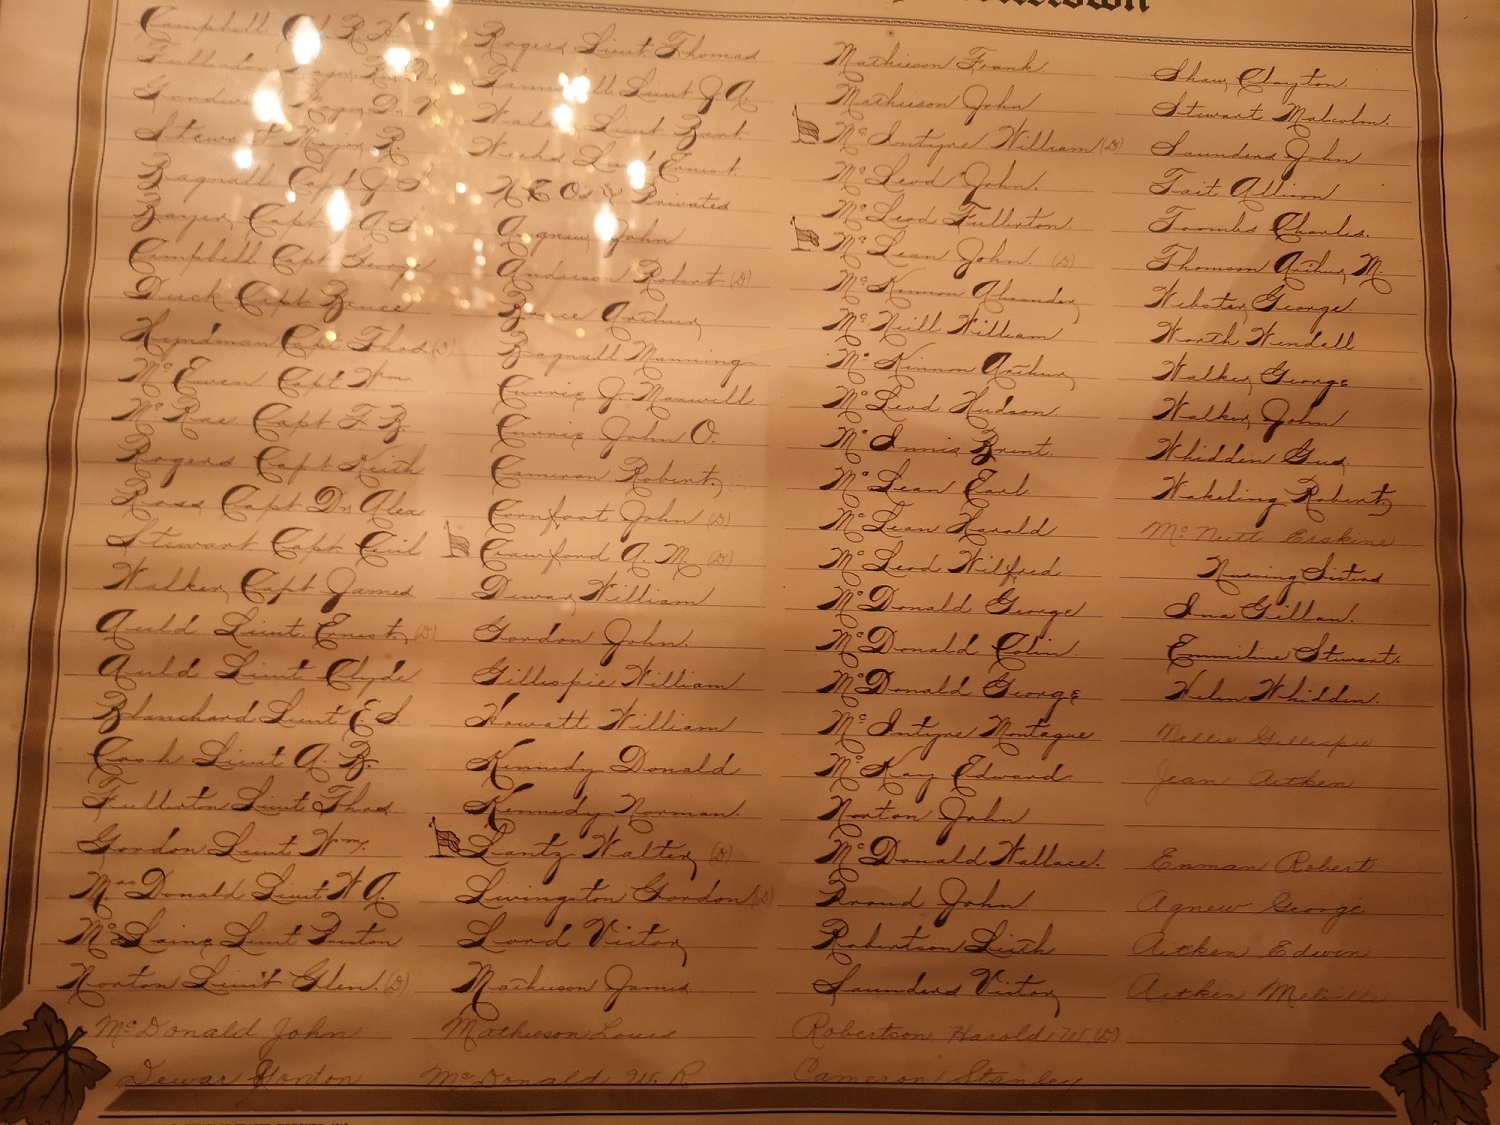 Campbell R.
Fullerton Major
Goodwin Major Dr. V
Stewart Major R.
Bagnall Capt J S
Boyer, Capt A. S
Campbell Capt George
Duck Capt Bruce
Hyndman Capt Thos (D)
McEwen Capt Wm
McRae Capt F. B.
Rogers Capt Keith
Ross Capt Dr Alex
Stewart Capt Cecil
Walker, Capt James
Auld Lieut Ernest, (D)
Auld Lieut Clyde
Blanchard Lieut E S.
Cash Lieut A. B.
Fullerton Lieut Thos
Gordon Lieut Wm.
MacDonald Lieut W A.
McLaine Lieut Preston
Norton Lieut Glen. (D)
McDonald John
Dewar Gordon
Rogers Lieut Thomas
Lieut J. A.
Walker Lieut Bert
Weeks Lieut Ernest
N.C.Os & Privates
Agnew John
Anderson Robert (D)
Bruce Arthur,
Bagnall Manning
Currie J. Maxwell
Currie John O.
Cameron Robert,
Cornfoot John (D)
Crawford A. M. (D)
Dewar, William
Gordon John.
Gillespie William
Howatt William
Kennedy Donald
Kennedy Norman.
Lantz Walter, (D)
Livingston Gordon (D)
Lord Victor,
Matheson James
Mathieson Louis
McDonald W. R.
Mathieson Frank.
Matheson John
McIntyre William (D)
McLeod John.
McLeod Fullerton
McLean John. (D)
McKinnon Alexander,
McNeill William
McKinnon Arthur,
McLeod Hudson
McInnis Brent.
McLean Earl
McLean Harald
McLeod Wilfred
McDonald George
McDonald Colin
McDonald George
McIntyre Montague
McKay Edward
Norton John
McDonald Wallace.
Proud John
Robertson Leith
Saunders Victor,
Robertson, Harold W. (D)
Cameron Stanley
Shaw, Clayton.
Stewart Malcolm.
Saunders John
Tait Allison
Toombs Charles.
Thomson Arthur, M.
Webster, George.
Worth Wendell
Walker, George
Walker, John
Whidden Gus
Wakeling Robert,
McNutt Erskine
Nursing Sisters
Ina Gillan.
Emmiline Stewart.
Helen Whidden.
Nellie Gillespie
Jean Aitken
Enman Robert
Agnew George
Aitken Edwin
Aitken Melville